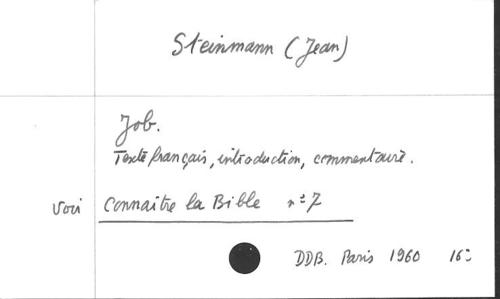 Steinmann (Jean)
Job.
Texte français, introduction, commentaire.
Voir Connaitre la Bible n° 7
DDB. Paris 1960 16°